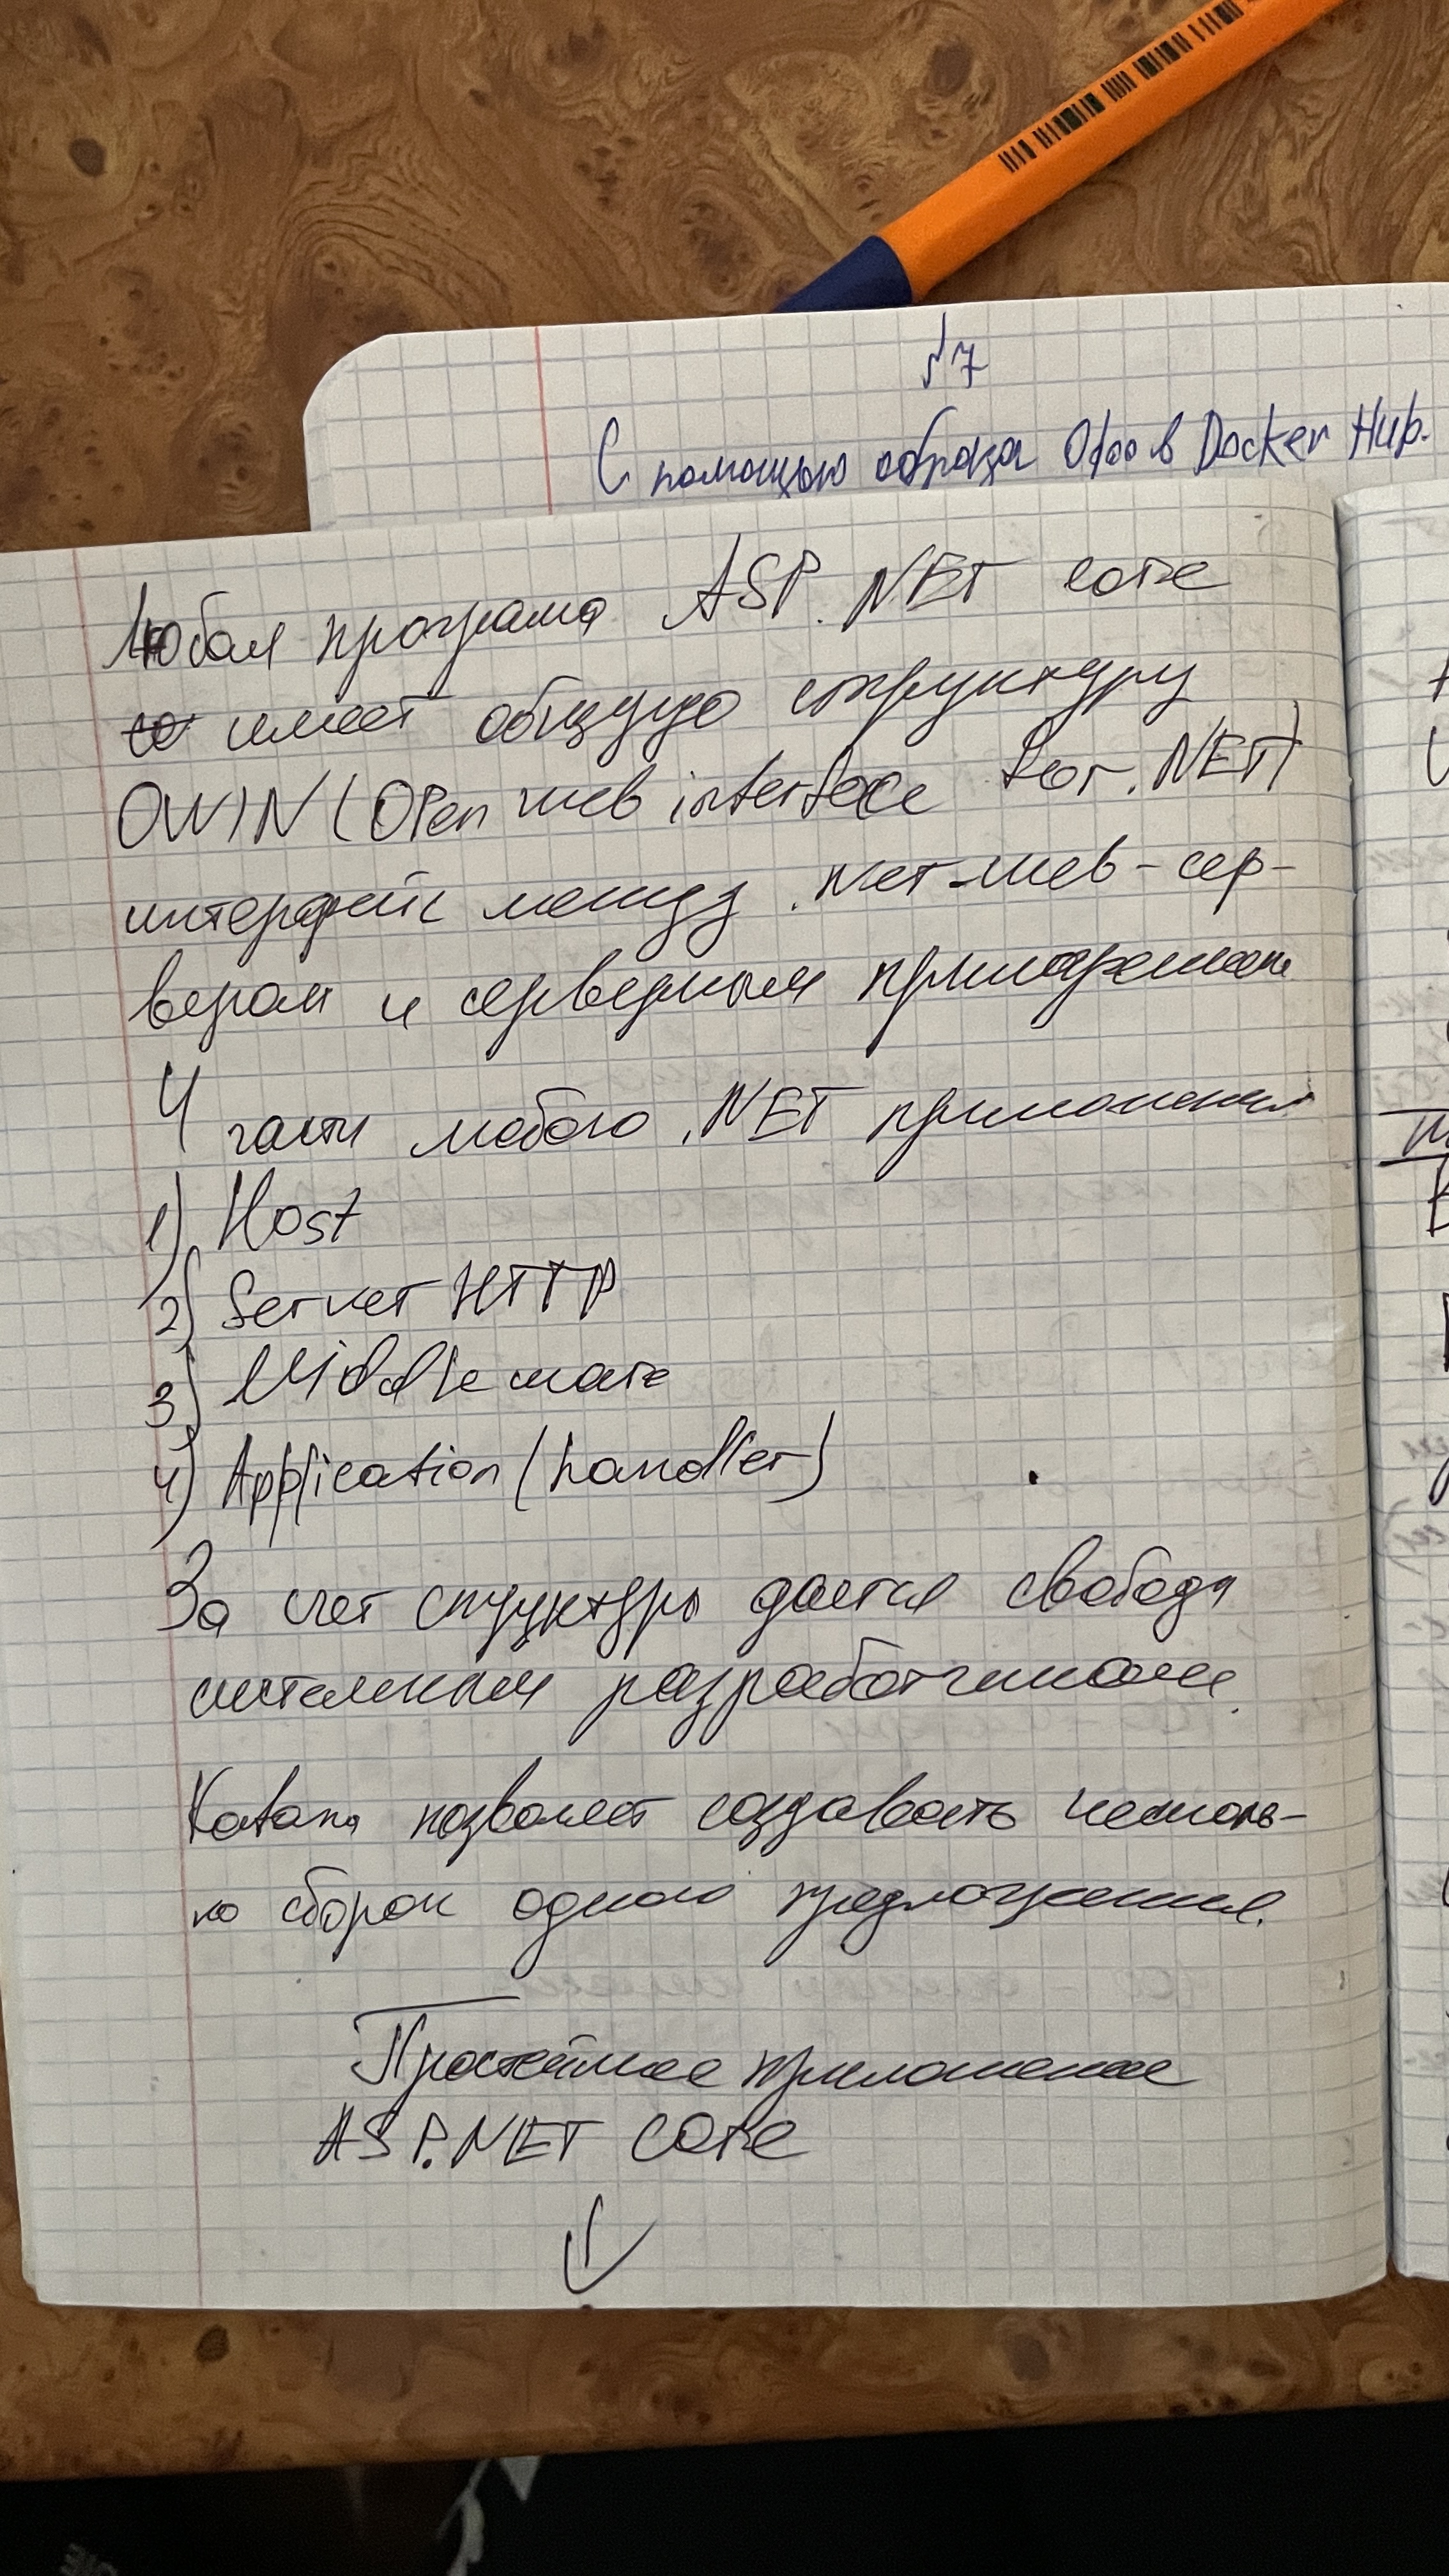 №7
С помощью образа Odoo в Docker Hub.
Любая програма ASP.NET core
имеет общую структуру
OWIN (OPen web interface for .NET)
интерфейс между .Net-web-сер-
вером и серверным приложением
4 части любого .NET приложения
1) Host
2) Server HTTP
3) Middleware
4) Application (handler)
За счет структуры дается свобода
системным разработчикам.
Katana позволяет создавать несколь-
ко сборок одного предложения.
Простейшее приложение
ASP.NET core